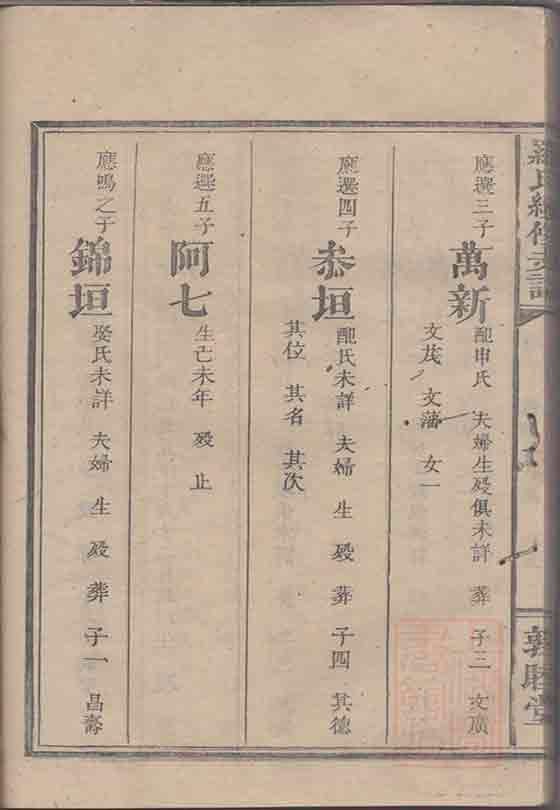 羅氏續修支譜
敦睦堂
應選三子
萬新
配申氏 夫婦生歿俱未詳 葬 子三 文廣
文茂 文藩 女一
應選四子
恭垣
配氏未詳 夫婦 生 歿 葬 子四 其德
其位 其名 其次
應選五子
阿七
生己未年 歿 止
應鳴之子
錦垣
娶氏未詳 夫婦 生 歿 葬 子一 昌壽